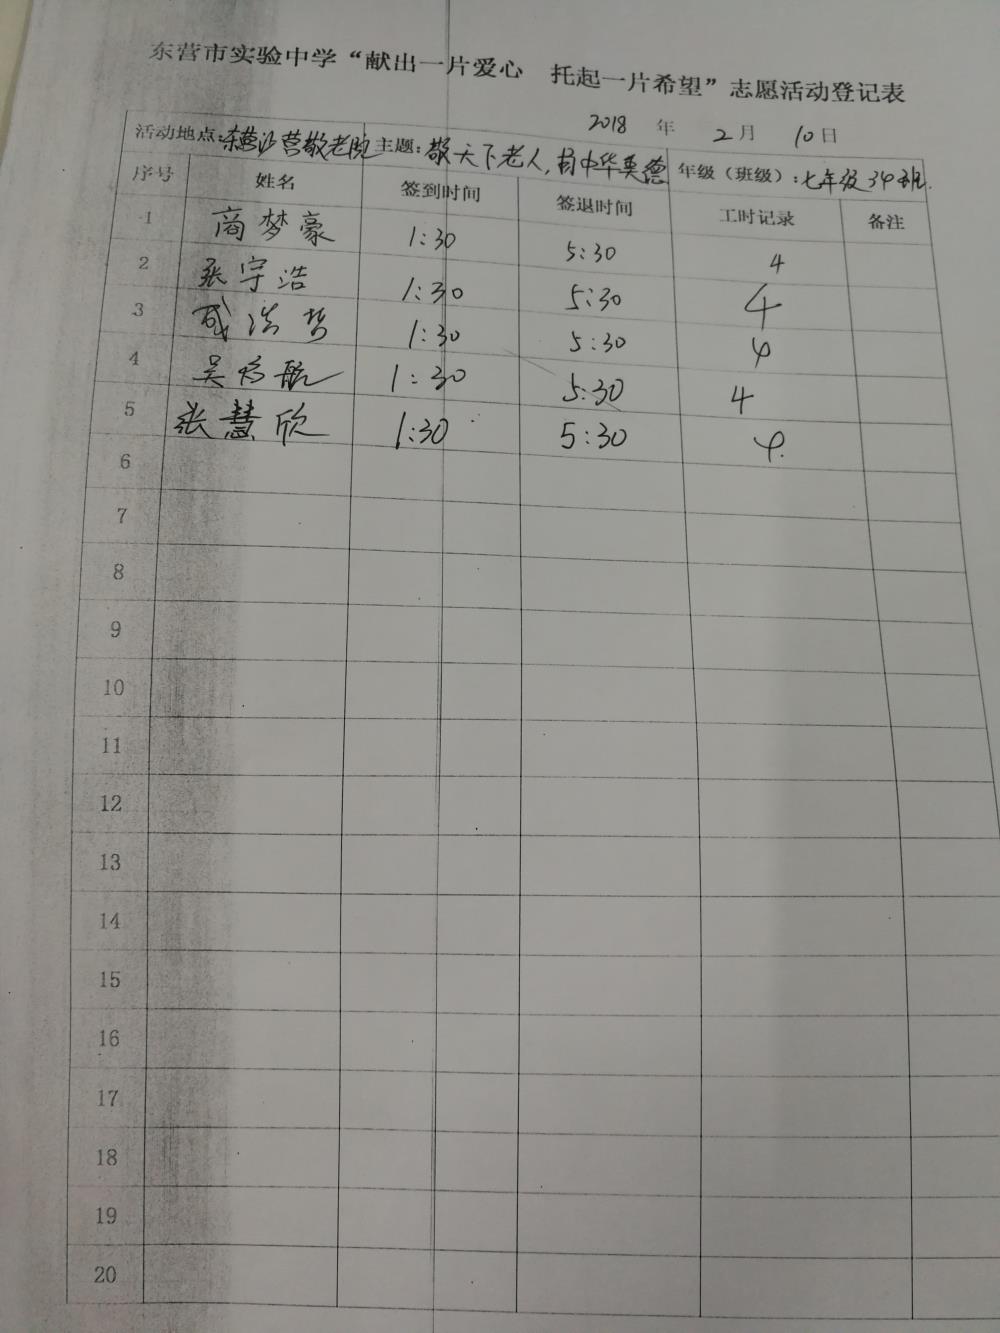 东营市实验中学“献出一片爱心 托起一片希望”志愿活动登记表
2018 年 2 月 10 日
活动地点:东营沙营敬老院 主题:敬天下老人,扬中华美德 年级（班级）:七年级34班.
序号 姓名 签到时间 签退时间 工时记录 备注
1 商梦豪 1:30 5:30 4
2 张宇浩 1:30 5:30 4
3 浩哲 1:30 5:30 4
4 吴航 1:30 5:30 4
5 张慧欣 1:30 5:30 4.
6
7
8
9
10
11
12
13
14
15
16
17
18
19
20